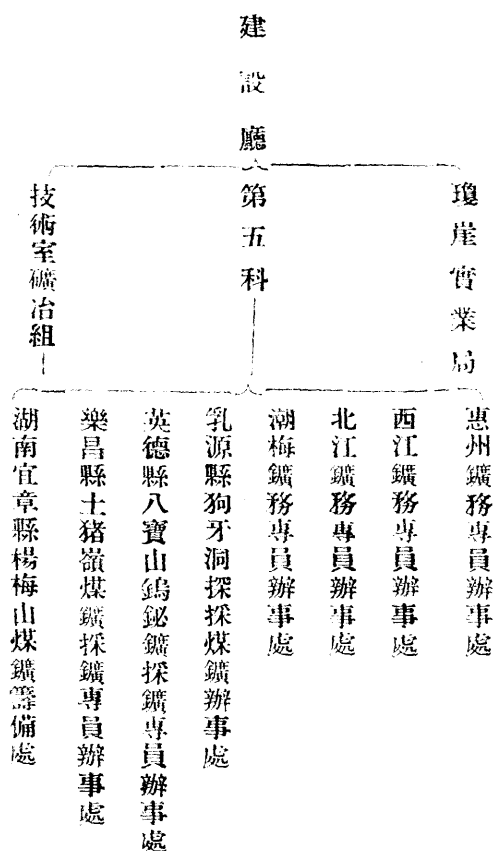 建設廳
瓊崖實業局
第五科
技術室礦冶組
惠州鑛務專員辦事處
西江鑛務專員辦事處
北江鑛務專員辦事處
潮梅鑛務專員辦事處
乳源縣狗牙洞探採煤鑛辦事處
英德縣八寶山鎢鉍鑛採鑛專員辦事處
樂昌縣土猪嶺煤鑛採鑛專員辦事處
湖南宜章縣楊梅山煤鑛籌備處